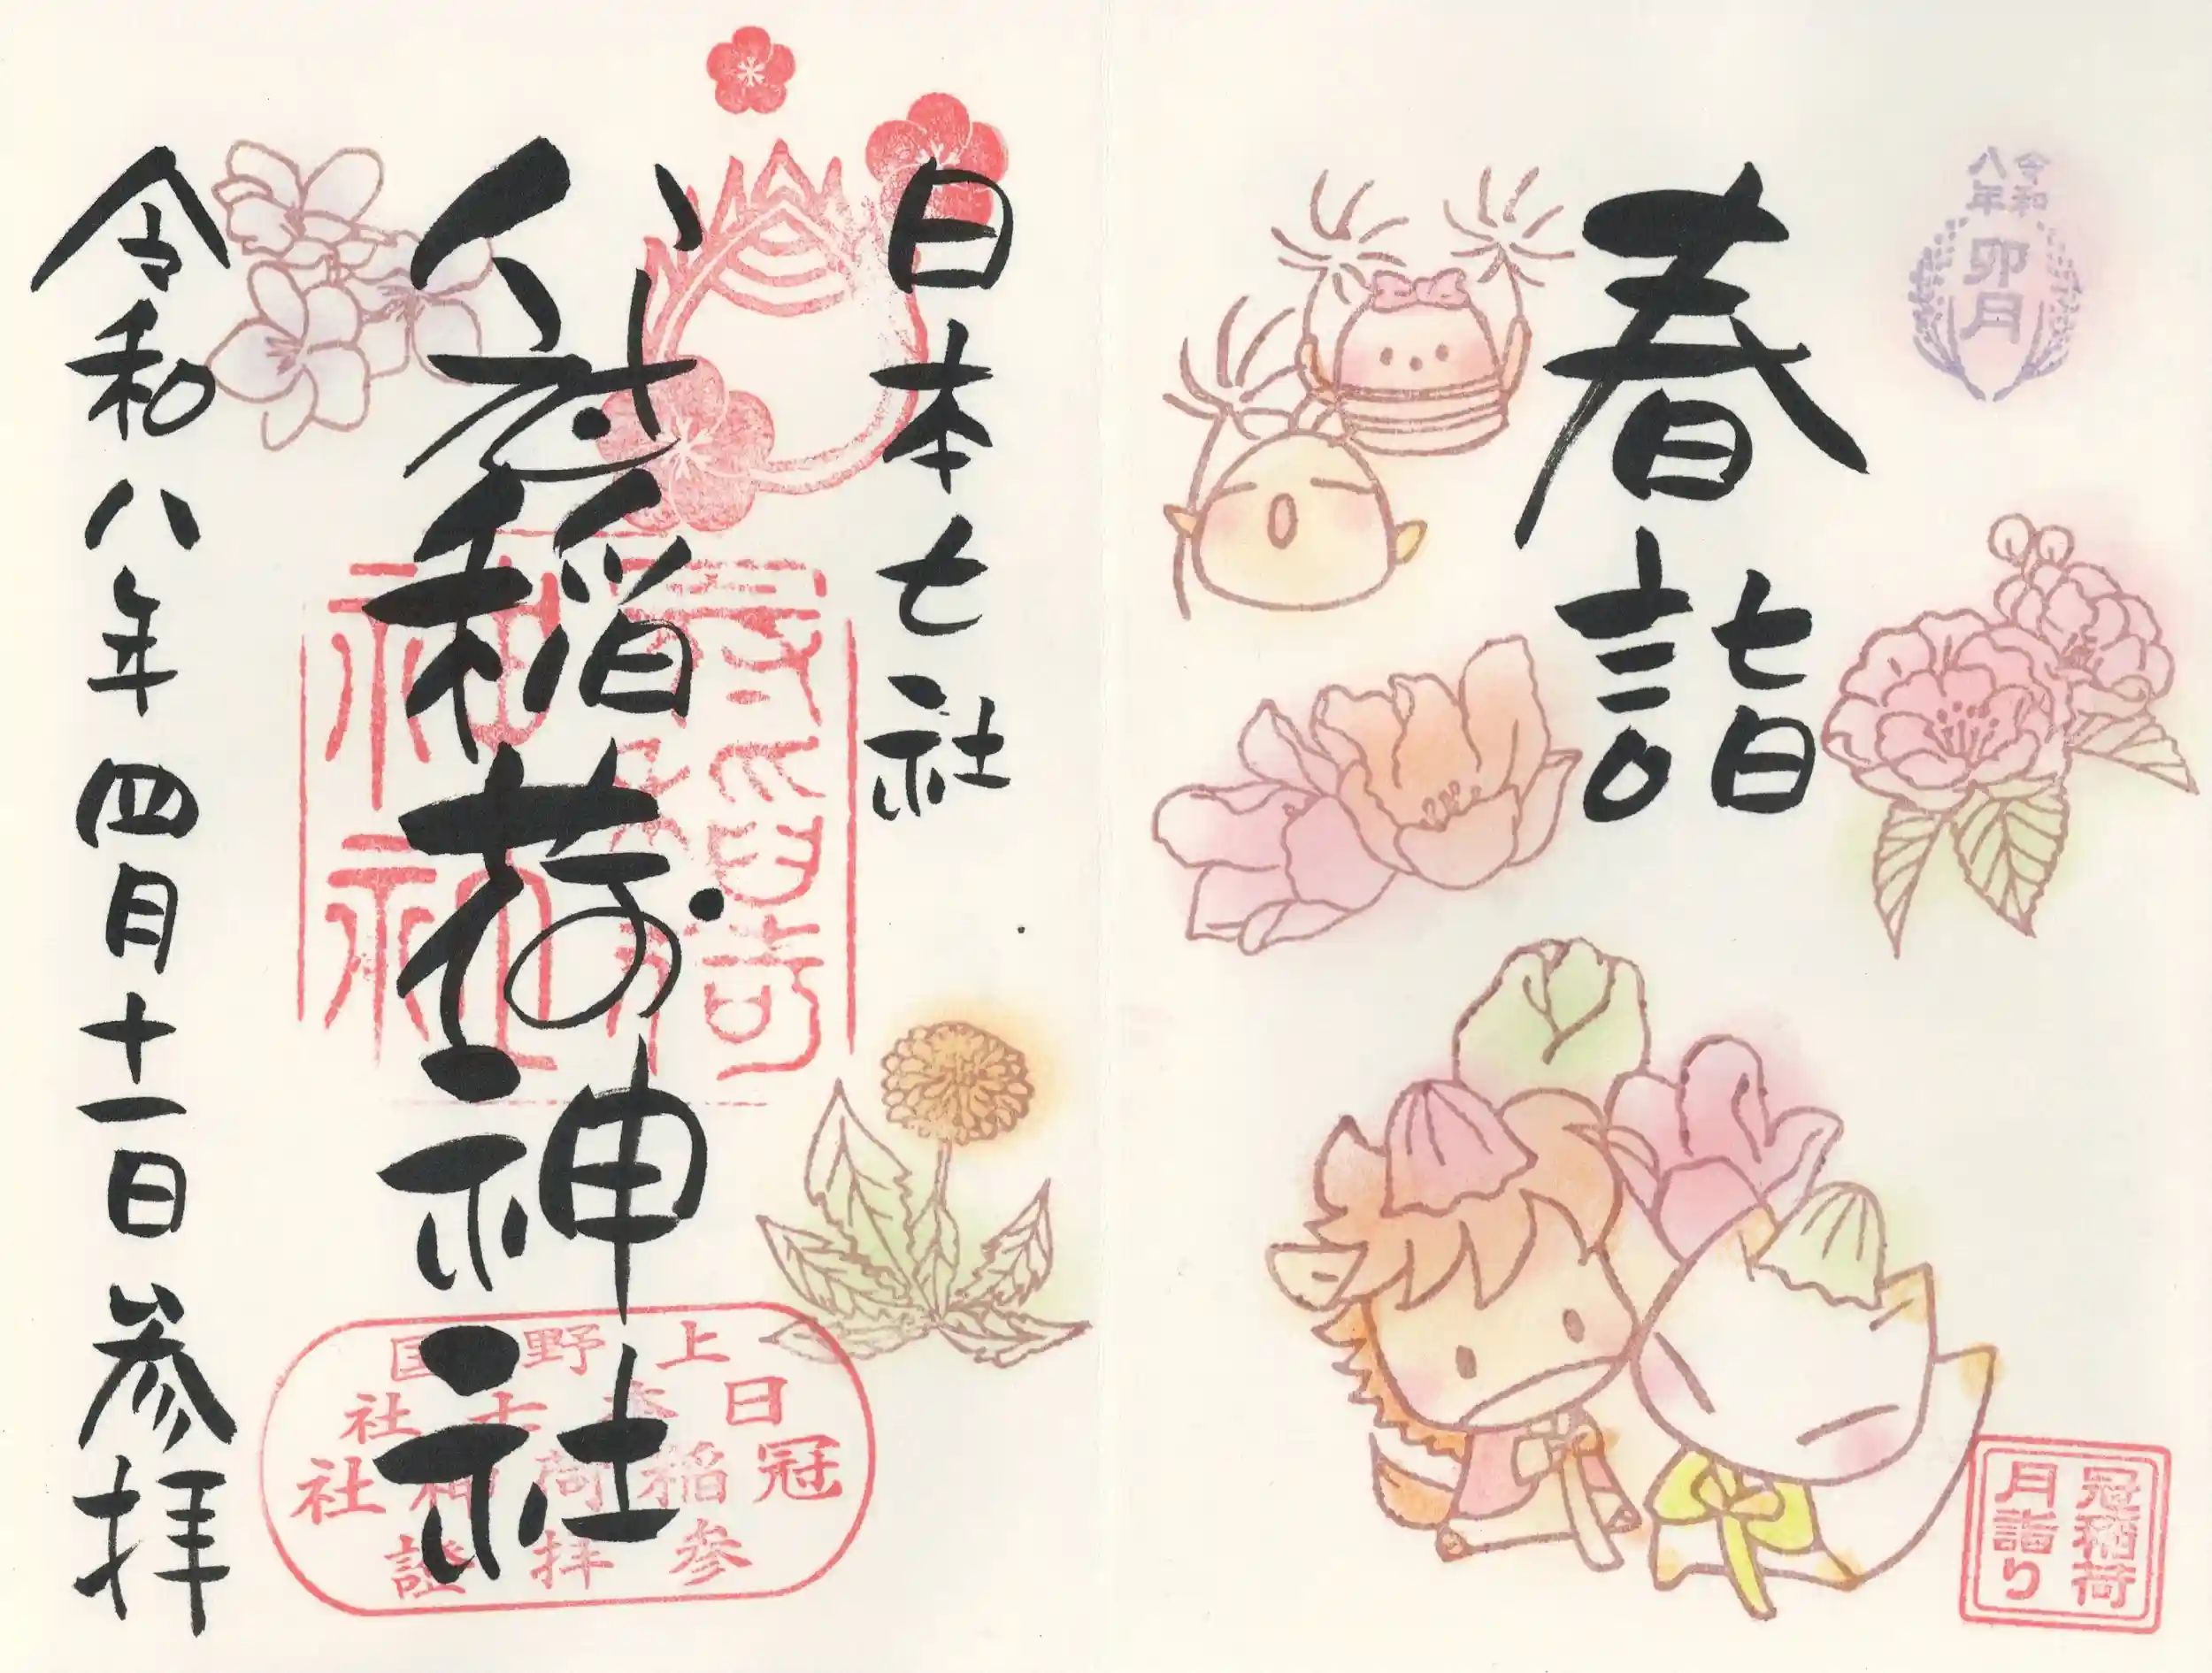 令和
八年
卯月
春詣
冠稲荷
月詣り
日本七社
冠稲荷神社
上野国
日本七社
冠稲荷神社
参拝證
令和八年四月十一日参拝